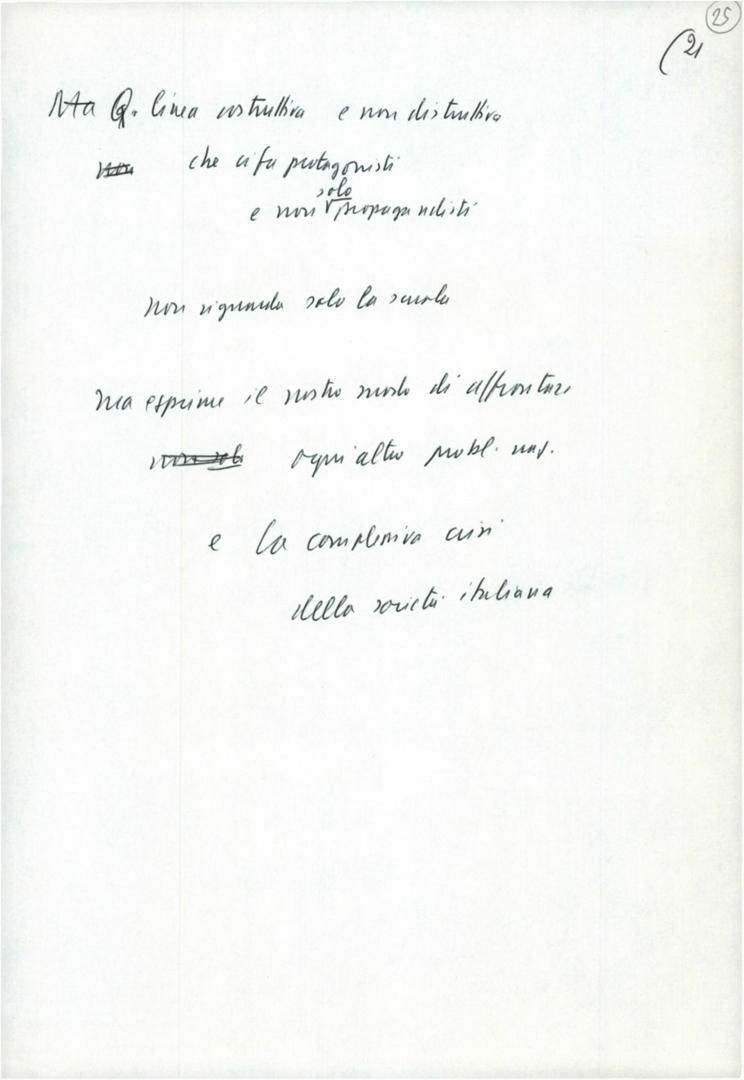 25
(21
Ma Q. linea costruttiva e non distruttiva
non che ci fa protagonisti
solo
e non propagandisti
non riguarda solo la scuola
ma esprime il nostro modo di affrontare
non solo ogni altro probl. naz.
e la complessiva crisi
della società italiana